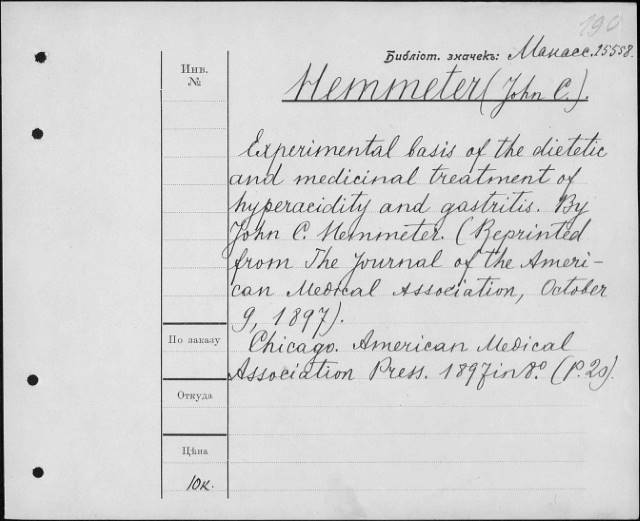 190
Библіот. значекъ: Манасс. 15558.
Инв.
№
Hemmeter (John C.).
Experimental basis of the dietetic
and medicinal treatment of
hyperacidity and gastritis. By
John C. Hemmeter. (Reprinted
from The Journal of the Ameri-
can Medical Association, October
9, 1897).
По заказу
Chicago. American Medical
Association Press. 1897 in 8º. (p. 20).
Откуда
Цѣна
10к.